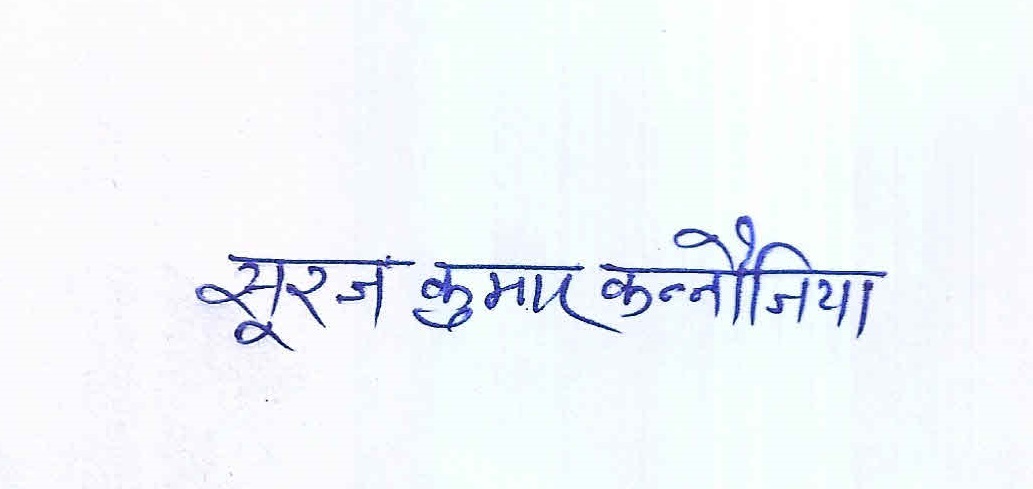 सूरज कुमार कन्नौजिया